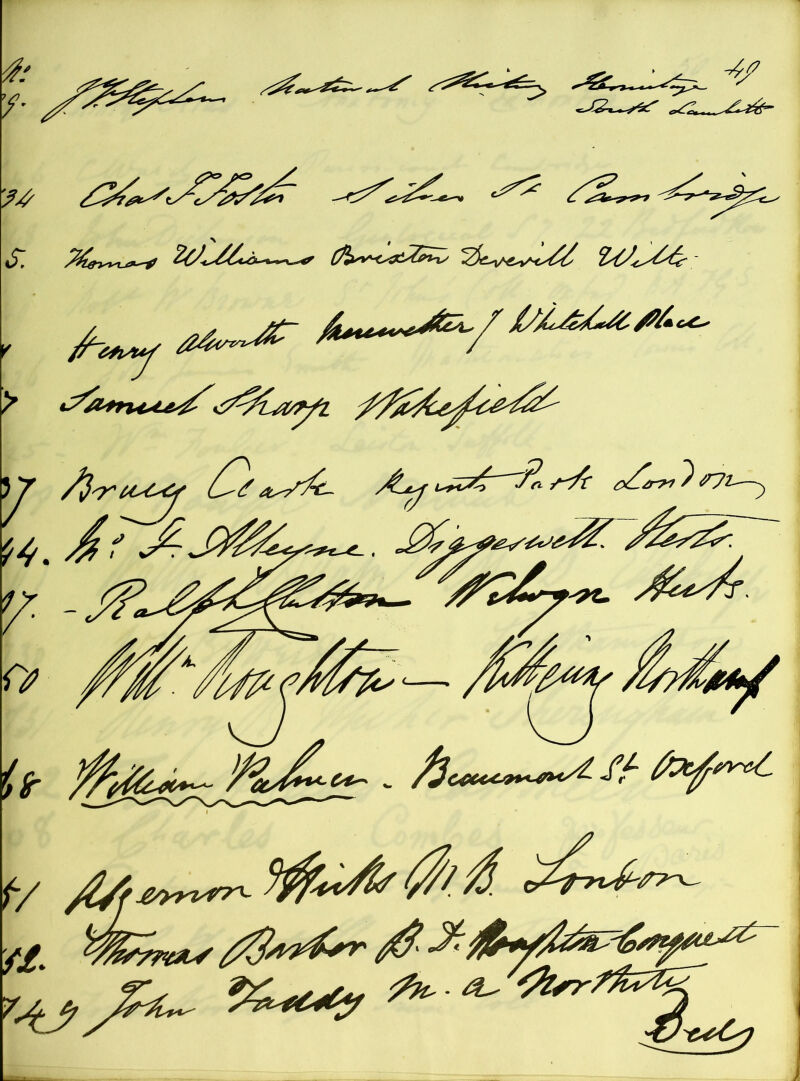 No.
49
9. J. F. Stephens Natural History Hermitage
South Lambeth
34 Chas F Foster Silver St Cambridge
5. Thomas Williams Brixton Deverill Wilts
Henry Alworth Merewether 7 Whitehall Place
7 Samuel Sharp Wakefield
37 Bracy Clark Regents Park London
44. Mr. F. Alleyne. Diggeswell. Herts.
97. - Ralph Clutton Welwyn Herts.
50 Willm. Roughton — Kettering Northamp
68 William Palmer - Beaumont St. Oxford
51 Algernon Hicks M. B. London
52. Thomas Barber B. D. Houghton Conquest
74 9 John Taddy M. a Northill
Beds